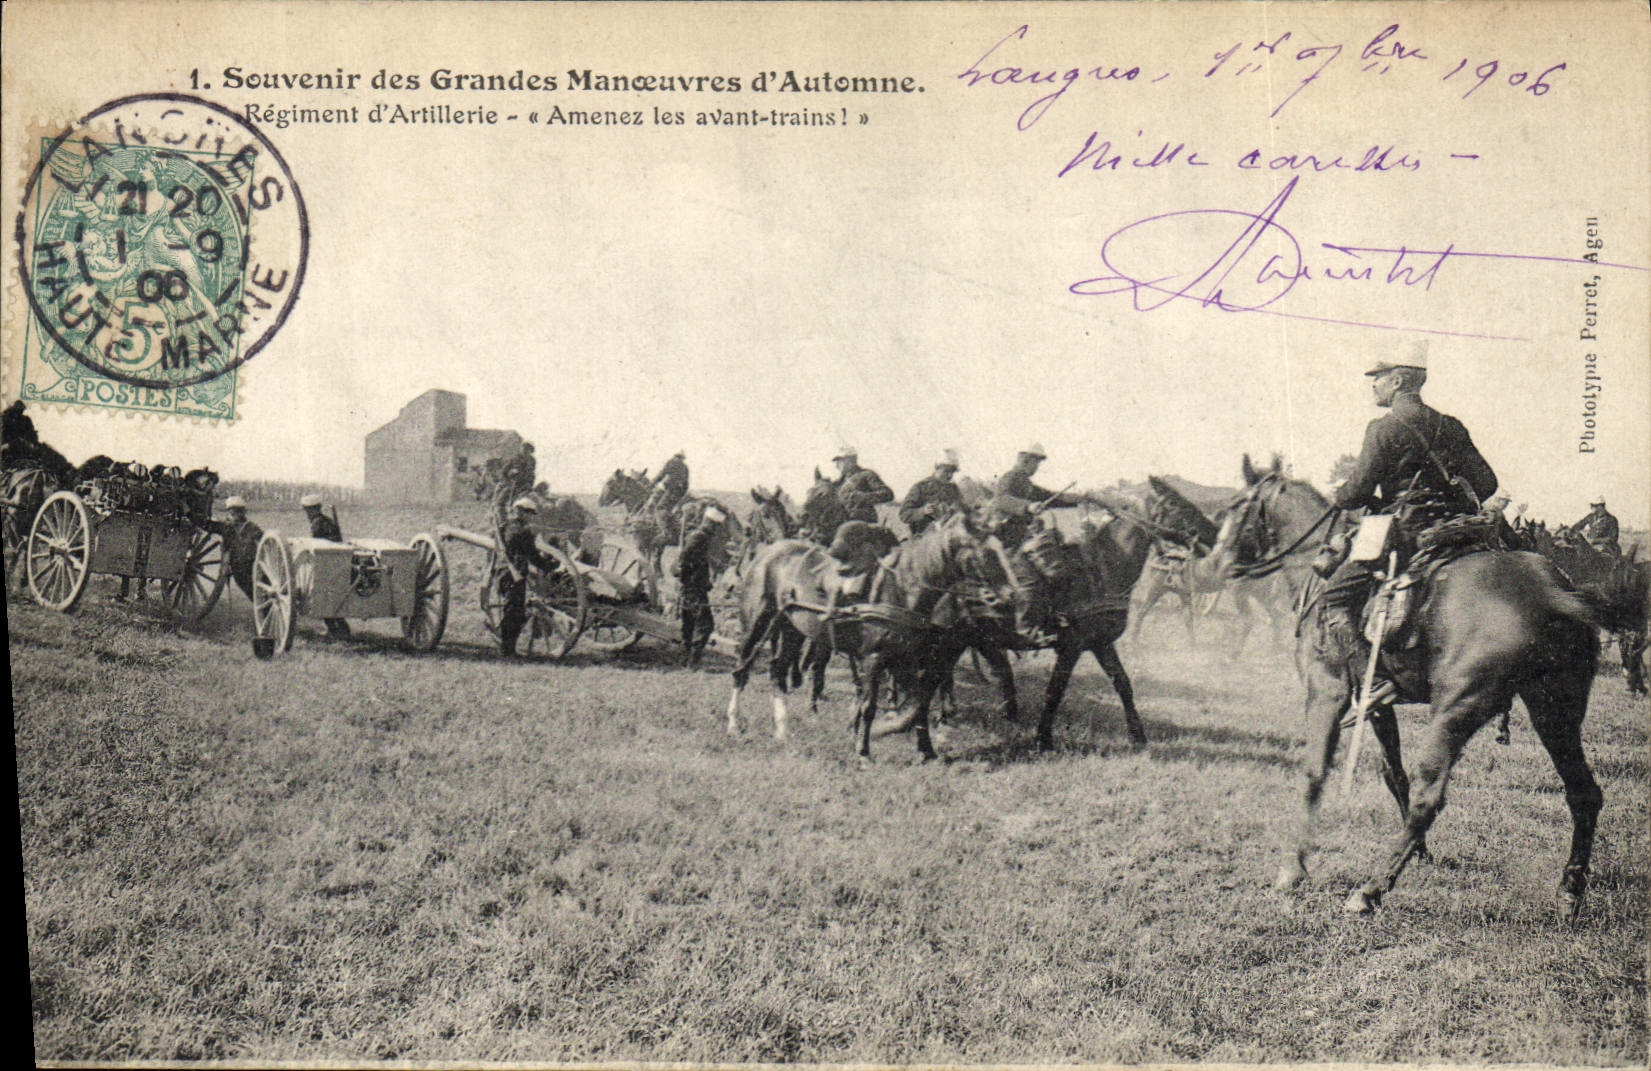 1. Souvenir des Grandes Manœuvres d'Automne.
Régiment d'Artillerie - « Amenez les avant-trains! »
Langres, 1er 7bre 1906
Mille caresses -
LANGRES
21 20
1 - 9
06
HAUTE MARNE
5
POSTES
Phototypie Perret, Agen